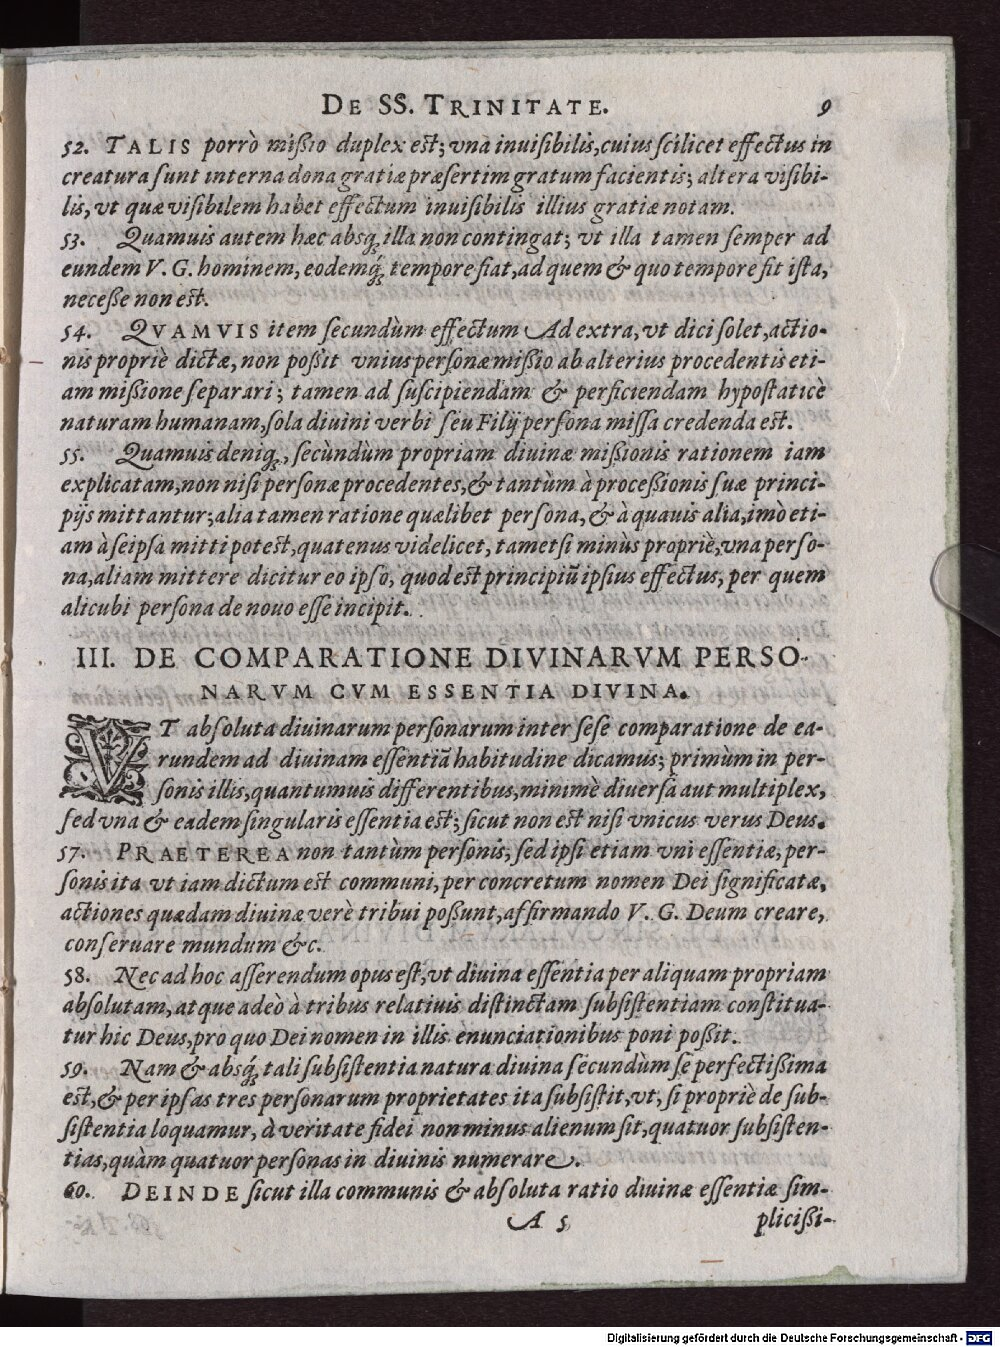 DE SS. TRINITATE. 9
52. TALIS porrò mißio duplex est; vna inuisibilis, cuius scilicet effectus in
creatura sunt interna dona gratiæ præsertim gratum facientis; altera visibi-
lis, vt quæ visibilem habet effectum inuisibilis illius gratiæ notam.
53. Quamuis autem hæc absq; illa non contingat; vt illa tamen semper ad
eundem V. G. hominem, eodemq́; tempore fiat, ad quem & quo tempore fit ista,
neceße non est.
54. QVAMVIS item secundùm effectum Ad extra, vt dici solet, actio-
nis propriè dictæ, non poßit vnius personæ mißio ab alterius procedentis eti-
am mißione separari; tamen ad suscipiendam & perficiendam hypostaticè
naturam humanam, sola diuini verbi seu Filij persona missa credenda est.
55. Quamuis deniq;, secùndùm propriam diuinæ mißionis rationem iam
explicatam, non nisi personæ procedentes, & tantùm à proceßionis suæ princi-
pijs mittantur; alia tamen ratione quælibet persona, & à quauis alia, imò eti-
am à seipsa mitti potest, quatenus videlicet, tametsi minùs propriè, vna perso-
na, aliam mittere dicitur eo ipso, quod est principiũ ipsius effectus, per quem
alicubi persona de nouo esse incipit.
III. DE COMPARATIONE DIVINARVM PERSO-
NARVM CVM ESSENTIA DIVINA.
VT absoluta diuinarum personarum inter sese comparatione de ea-
rundem ad diuinam essentiã habitudine dicamus; primùm in per-
sonis illis, quantumuis differentibus, minimè diuersa aut multiplex,
sed vna & eadem singularis essentia est; sicut non est nisi vnicus verus Deus.
57. PRAETEREA non tantùm personis, sed ipsi etiam vni essentiæ, per-
sonis ita vt iam dictum est communi, per concretum nomen Dei significatæ,
actiones quædam diuinæ verè tribui poßunt, affirmando V. G. Deum creare,
conseruare mundum &c.
58. Nec ad hoc asserendum opus est, vt diuina essentia per aliquam propriam
absolutam, atque adeò à tribus relatiuis distinctam subsistentiam constitua-
tur hic Deus, pro quo Dei nomen in illis enunciationibus poni poßit.
59. Nam & absq́; tali subsistentia natura diuina secundùm se perfectißima
est, & per ipsas tres personarum proprietates ita subsistit, vt, si propriè de sub-
sistentia loquamur, à veritate fidei non minus alienum sit, quatuor subsisten-
tias, quàm quatuor personas in diuinis numerare.
60. DEINDE sicut illa communis & absoluta ratio diuinæ essentiæ sim-
A 5 plicißi-
Digitalisierung gefördert durch die Deutsche Forschungsgemeinschaft - DFG